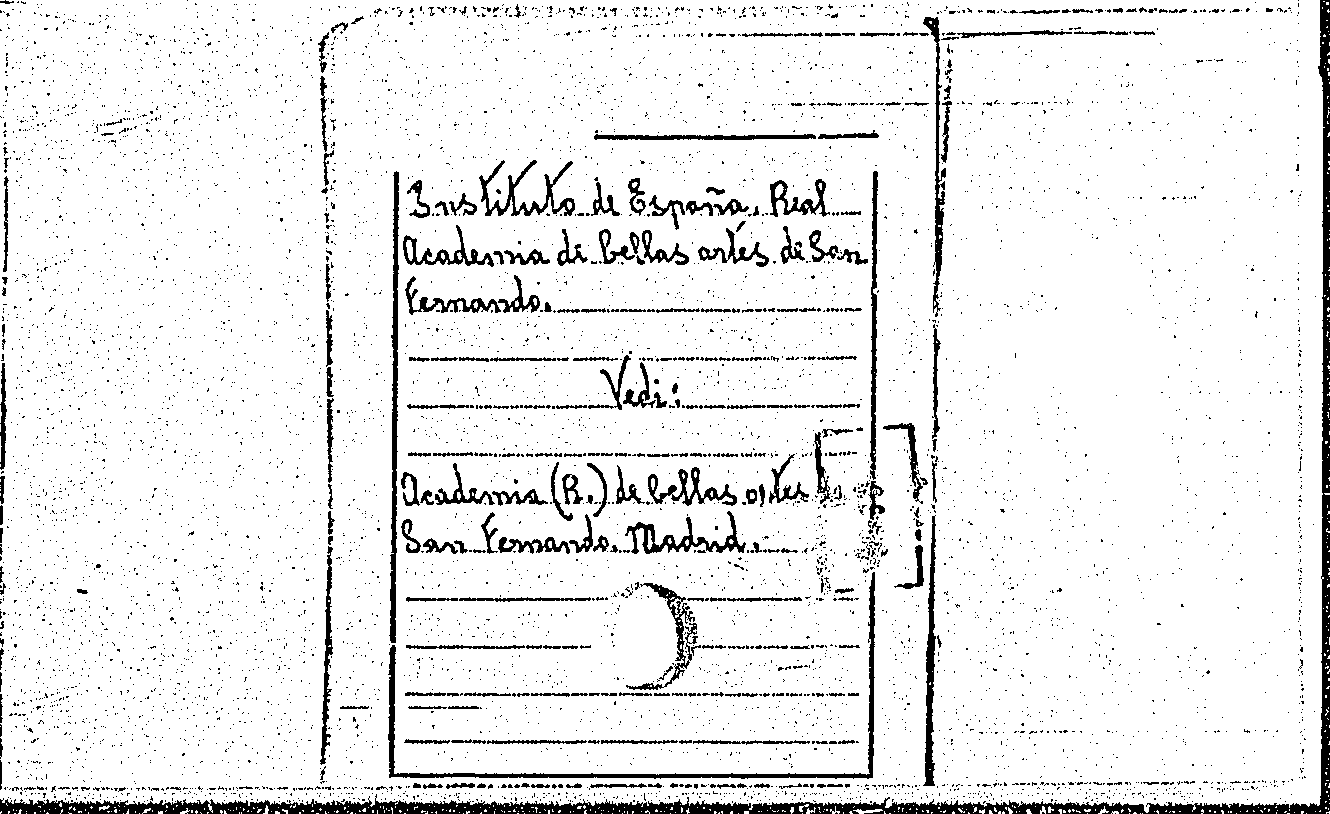 Instituto de España. Real
Academia di bellas artes di San
Fernando.
Vedi:
Academia (R.) de bellas artes
San Fernando. Madrid.